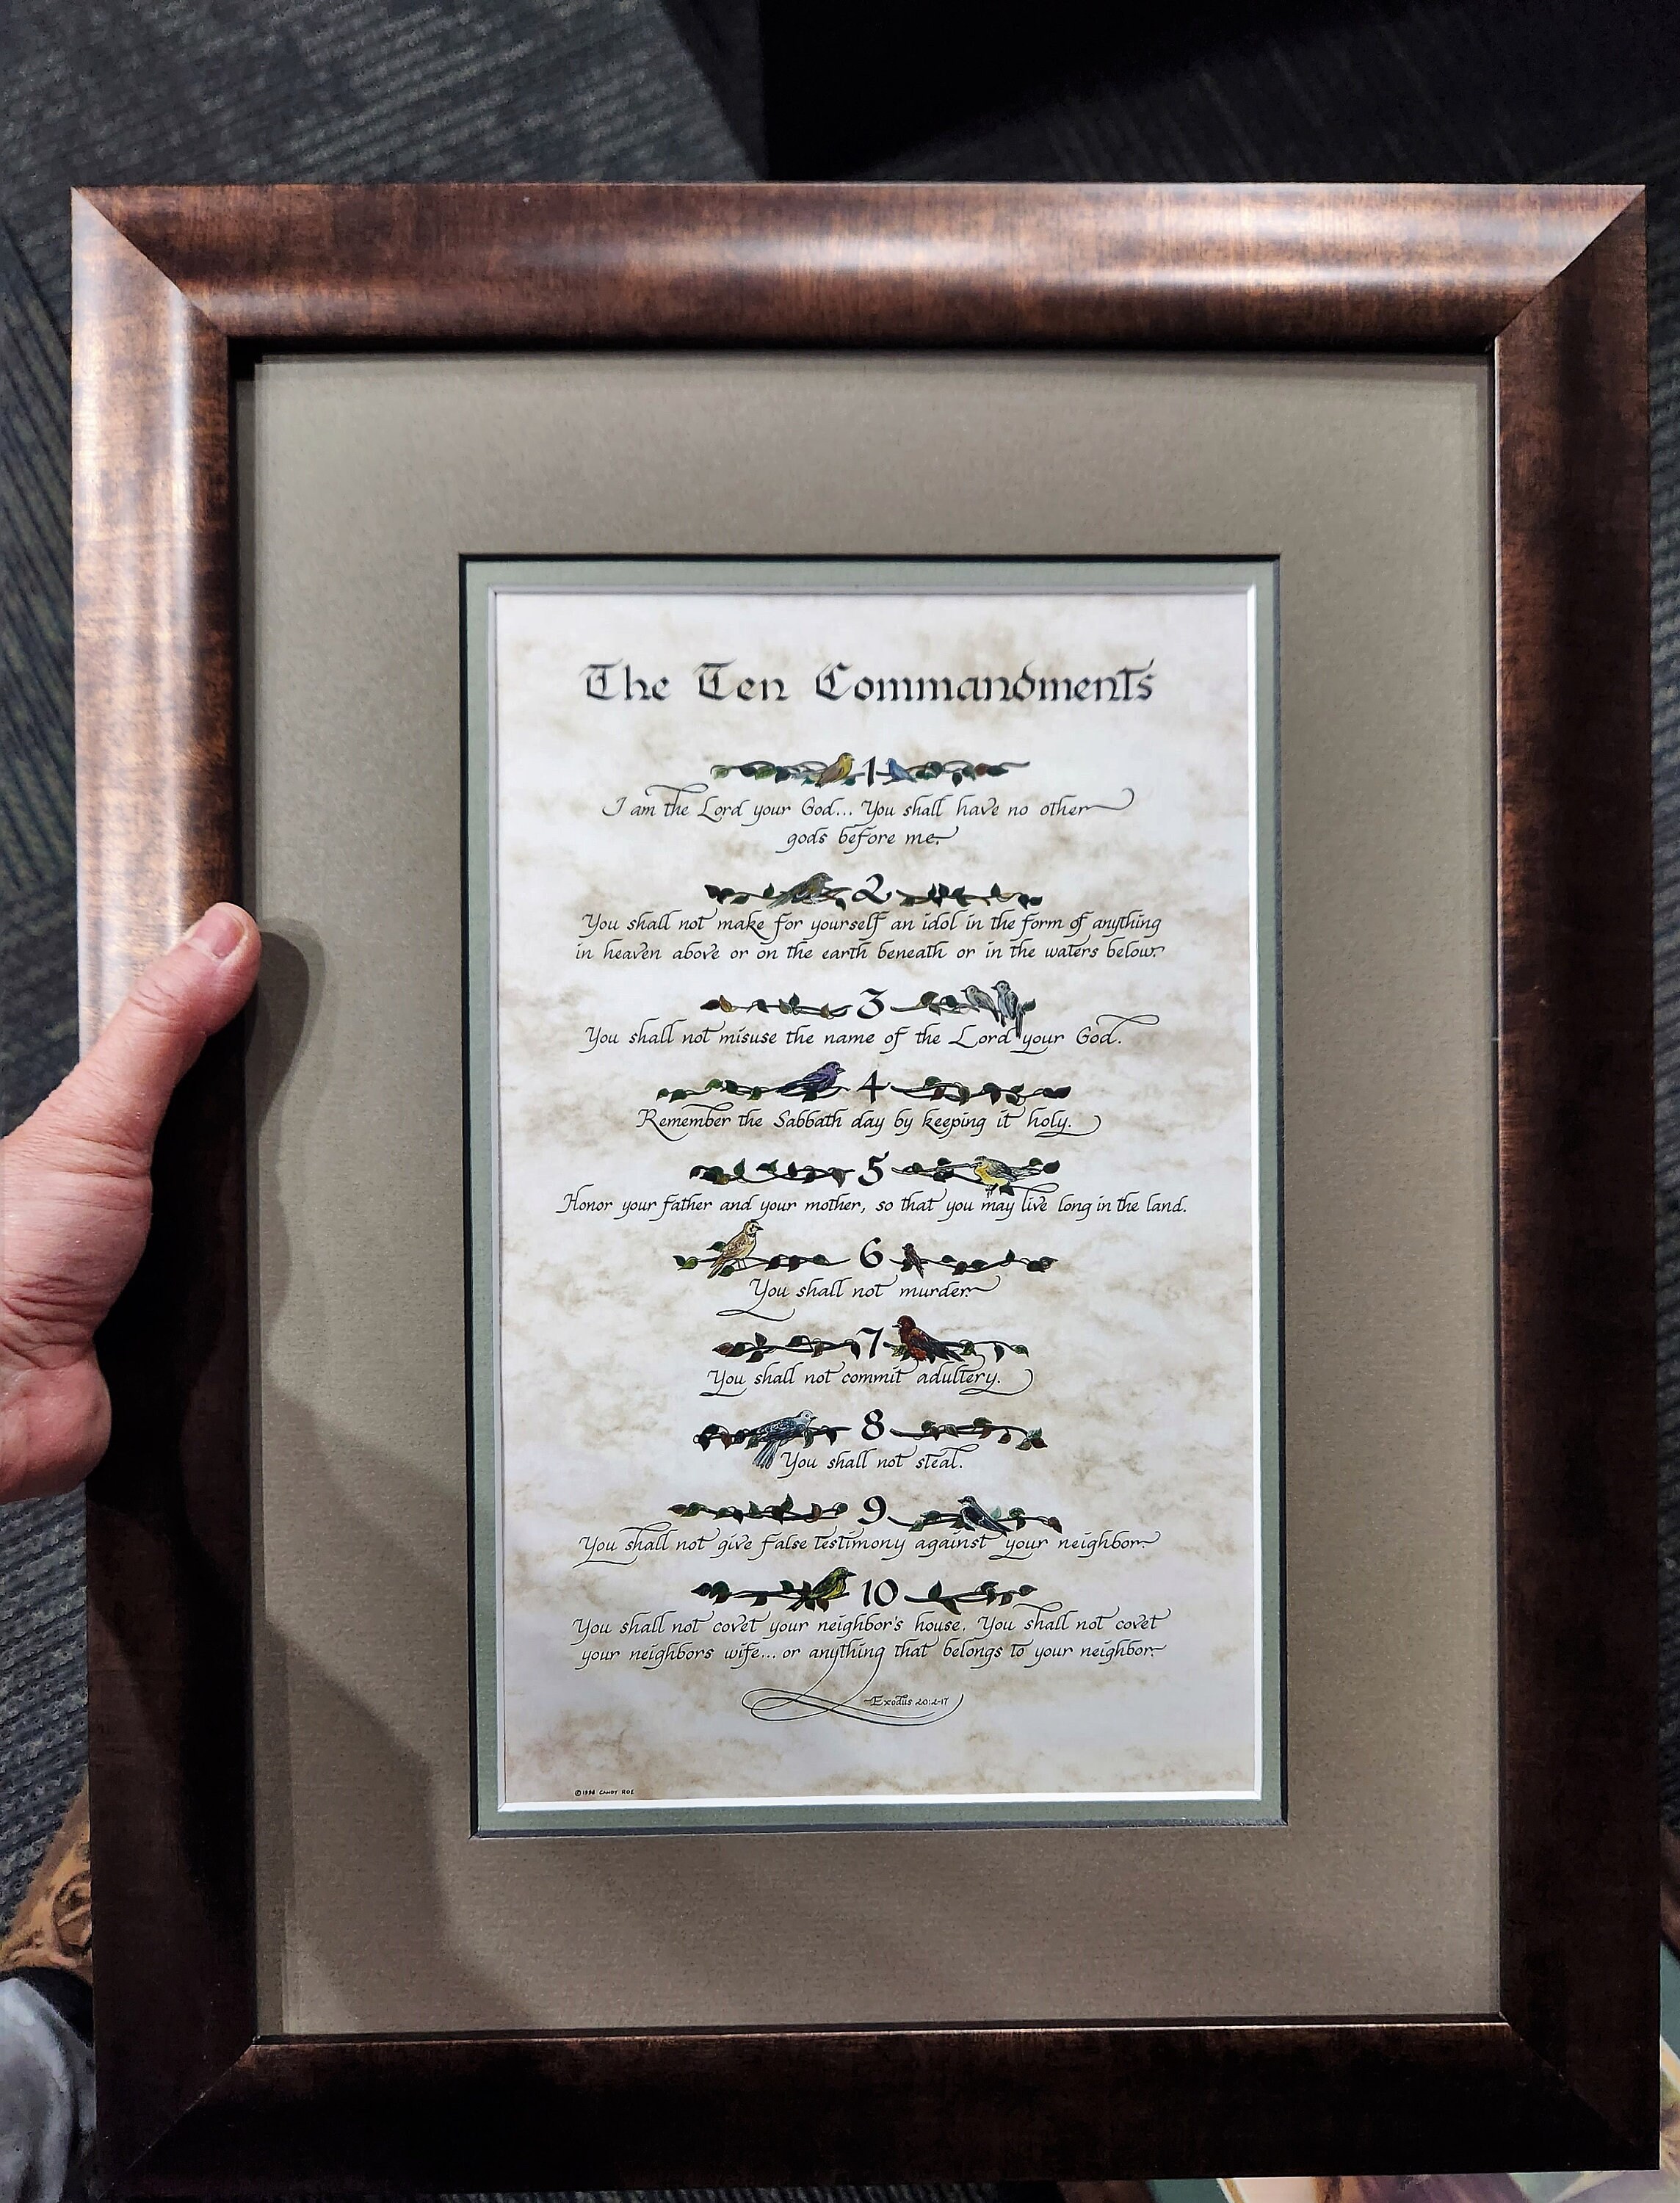 The Ten Commandments
1
I am the Lord your God... You shall have no other
gods before me.
2
You shall not make for yourself an idol in the form of anything
in heaven above or on the earth beneath or in the waters below.
3
You shall not misuse the name of the Lord your God.
4
Remember the Sabbath day by keeping it holy.
5
Honor your father and your mother, so that you may live long in the land.
6
You shall not murder.
7
You shall not commit adultery.
8
You shall not steal.
9
You shall not give false testimony against your neighbor.
10
You shall not covet your neighbor's house. You shall not covet
your neighbors wife... or anything that belongs to your neighbor.
-Exodus 20:2-17
© 1998 CANDY ROE